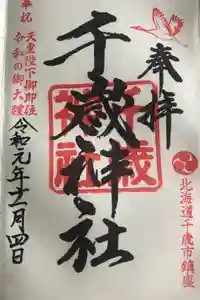 奉拝
千歳神社
奉祝
天皇陛下御即位
令和の御大禮
令和元年十一月四日
北海道千歳市鎮座
千歳神社